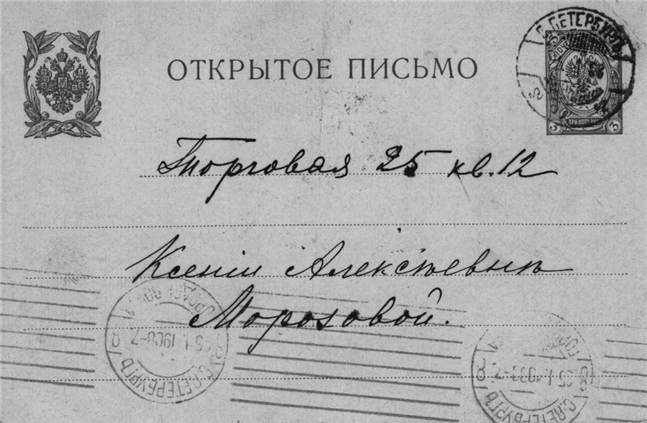 ОТКРЫТОЕ ПИСЬМО
С.ПЕТЕРБУРГЪ
ТРИ КОП
Торговая 25 кв. 12
Ксеніи Алексѣевнѣ
Морозовой.
С.ПЕТЕРБУРГЪ
С.ПЕТЕРБУРГЪ